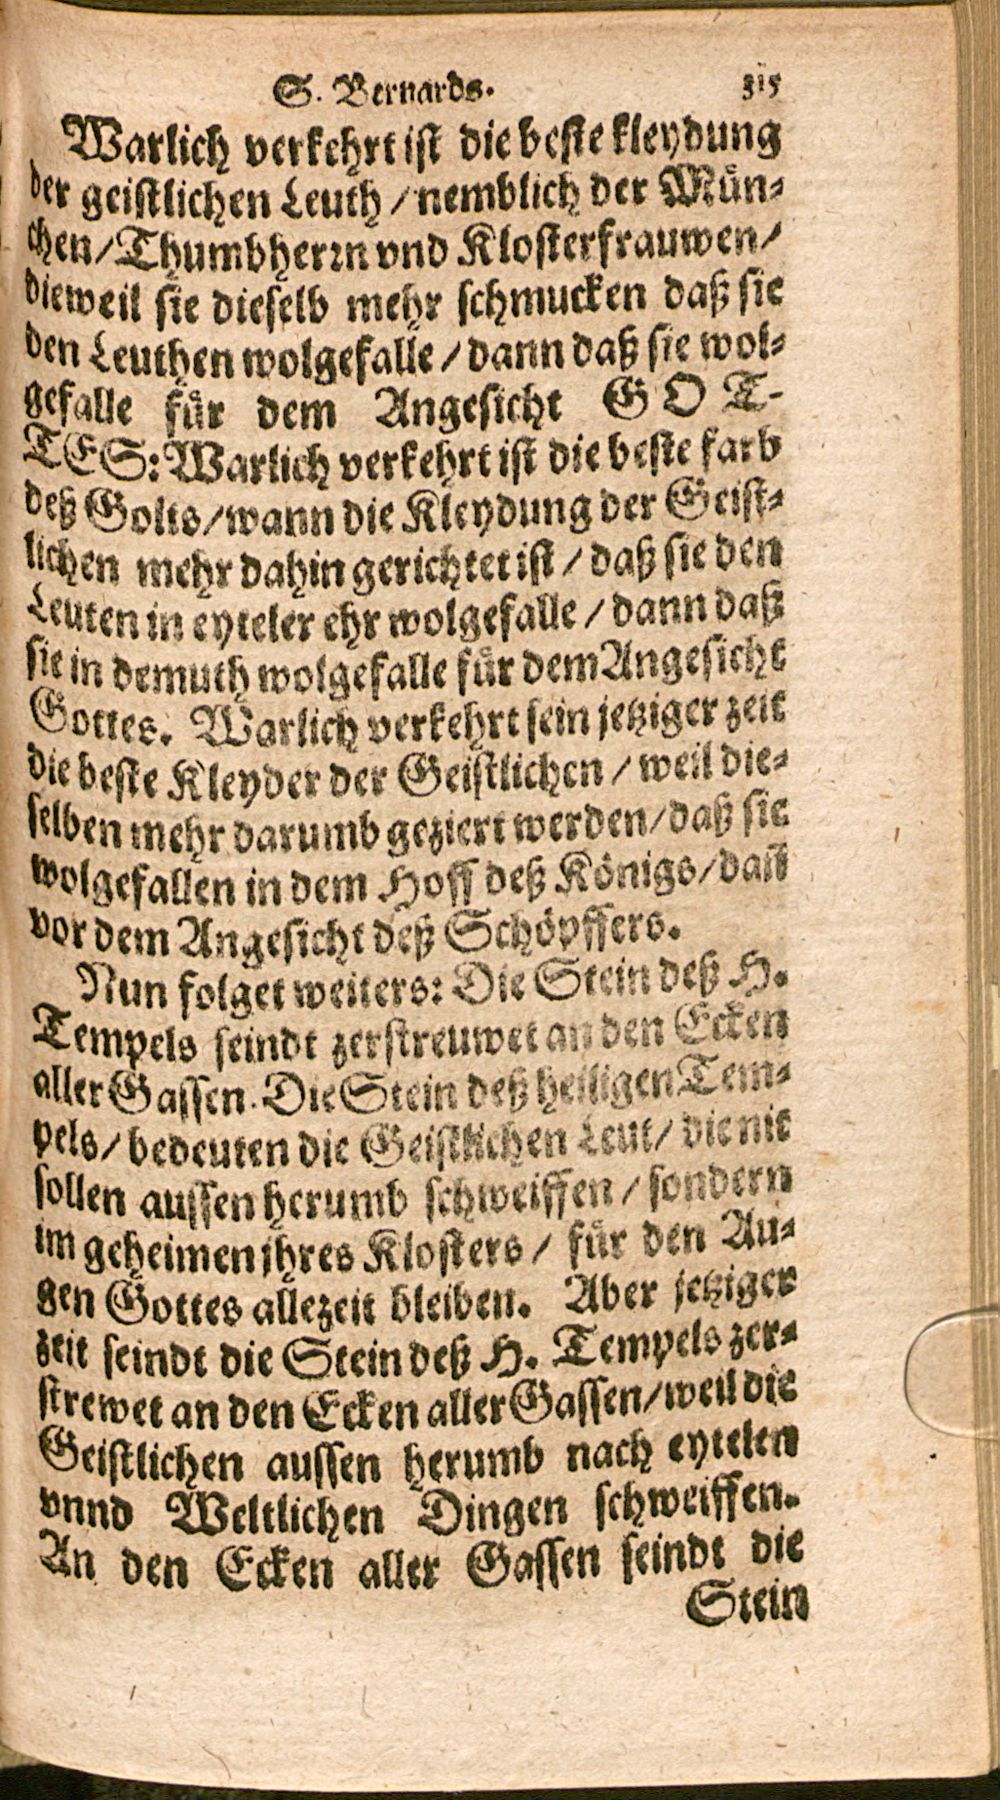 S. Bernards. 315
Warlich verkehrt ist die beste kleydung
der geistlichen Leuth / nemblich der Mün-
chen / Thumbherrn vnd Klosterfrauwen /
dieweil sie dieselb mehr schmucken daß sie
den Leuthen wolgefalle / dann daß sie wol-
gefalle für dem Angesicht GOT-
TES: Warlich verkehrt ist die beste farb
deß Golts / wann die Kleydung der Geist-
lichen mehr dahin gerichtet ist / daß sie den
Leuten in eyteler ehr wolgefalle / dann daß
sie in demuth wolgefalle für dem Angesicht
Gottes. Warlich verkehrt sein jetziger zeit
die beste Kleyder der Geistlichen / weil die-
selben mehr darumb geziert werden / daß sie
wolgefallen in dem Hoff deß Königs / dañ
vor dem Angesicht deß Schöpffers.
Nun folget weiters: Die Stein deß H.
Tempels seindt zerstreuwet an den Ecken
aller Gassen. Die Stein deß heiligen Tem-
pels / bedeuten die Geistlichen Leut / die nit
sollen aussen herumb schweiffen / sondern
im geheimen jhres Klosters / für den Au-
gen Gottes allezeit bleiben. Aber jetziger
zeit seindt die Stein deß H. Tempels zer-
strewet an den Ecken aller Gassen / weil die
Geistlichen aussen herumb nach eytelen
vnnd Weltlichen Dingen schweiffen.
An den Ecken aller Gassen seindt die
Stein